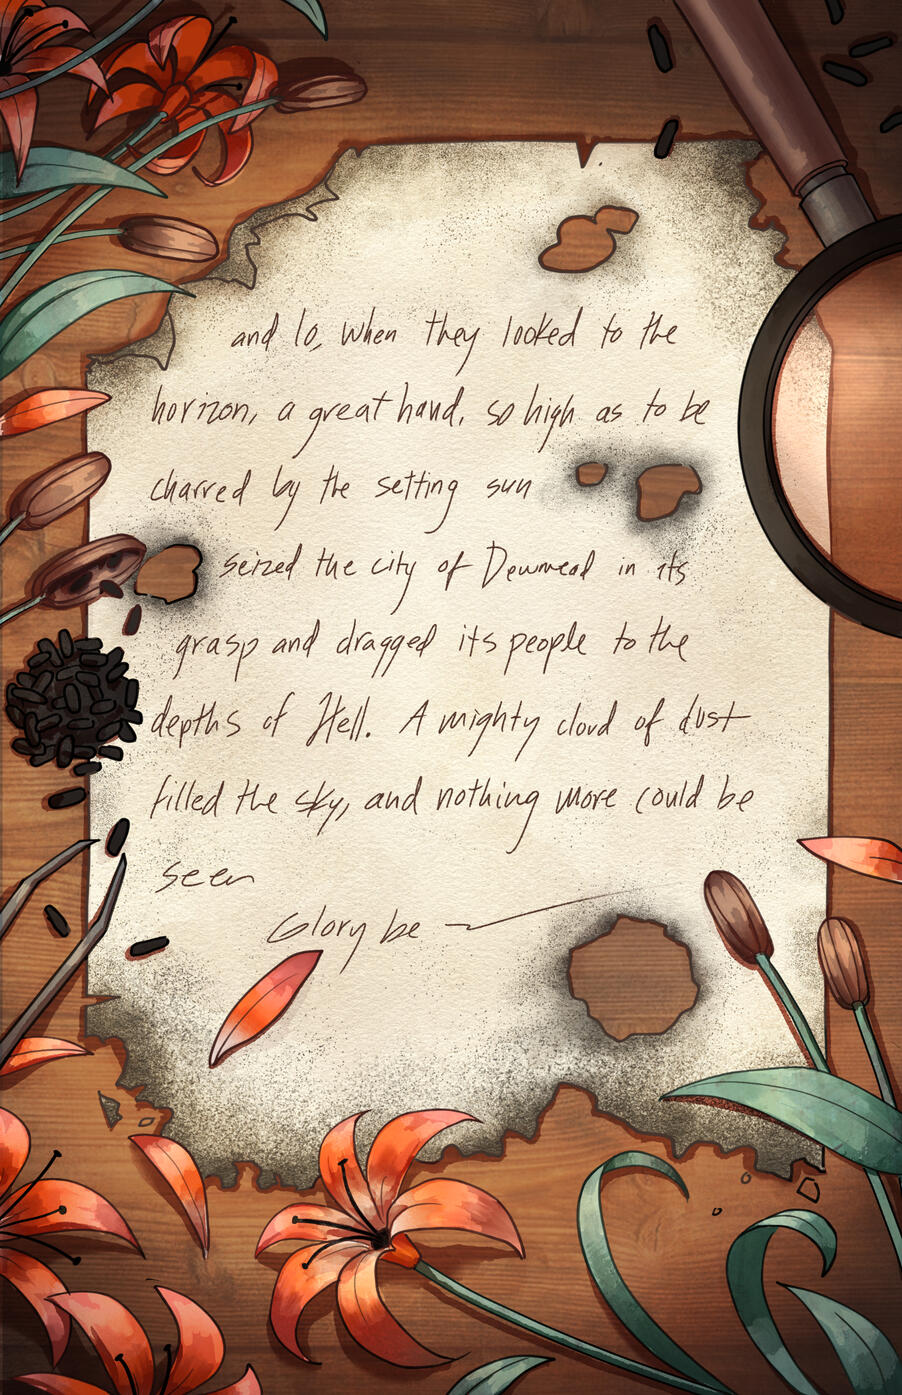 and lo, when they looked to the
horizon, a great hand, so high as to be
charred by the setting sun
seized the city of Dewmead in its
grasp and dragged its people to the
depths of Hell. A mighty cloud of dust
filled the sky, and nothing more could be
seen
Glory be —